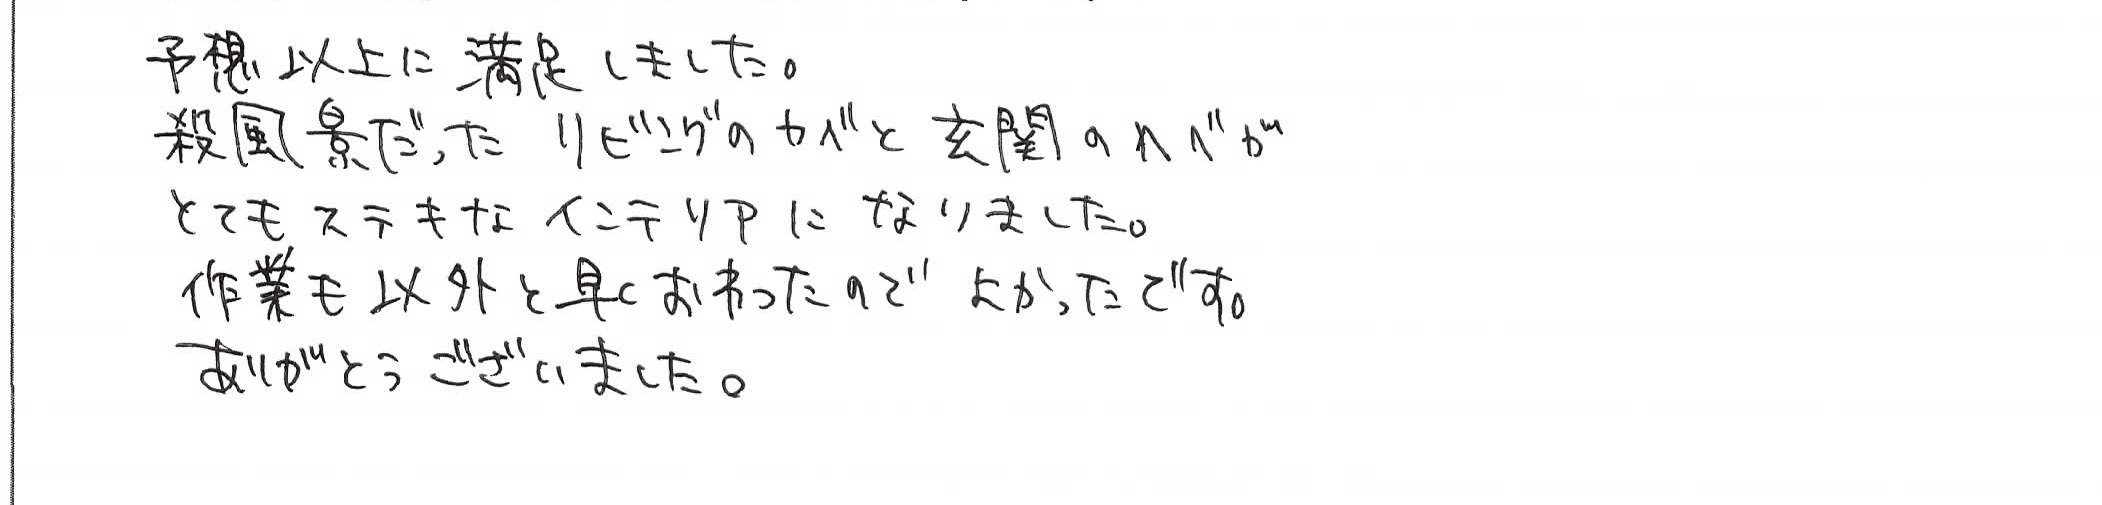 予想以上に満足しました。
殺風景だった リビングのカベと玄関のカベが
とてもステキなインテリアになりました。
作業も以外と早くおわったのでよかったです。
ありがとうございました。